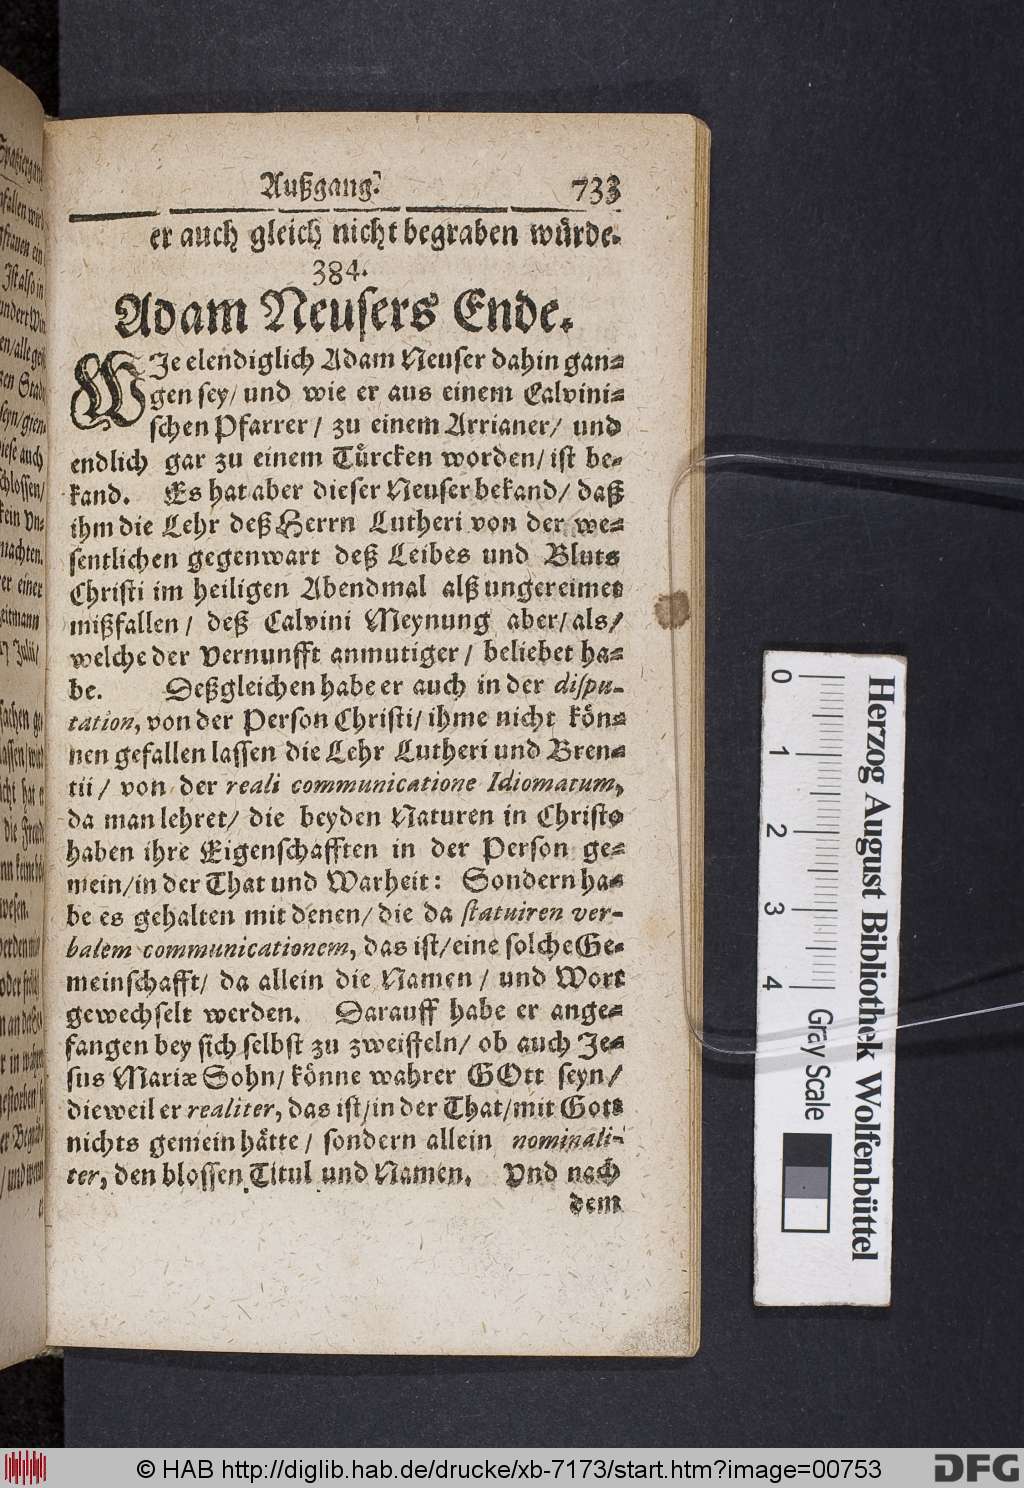 Außgang. 733
er auch gleich nicht begraben würde.
384.
Adam Neusers Ende.
WJe elendiglich Adam Neuser dahin gan-
gen sey/ und wie er aus einem Calvini-
schen Pfarrer/ zu einem Arrianer/ und
endlich gar zu einem Türcken worden/ ist be-
kand. Es hat aber dieser Neuser bekand/ daß
ihm die Lehr deß Herrn Lutheri von der we-
sentlichen gegenwart deß Leibes und Bluts
Christi im heiligen Abendmal alß ungereimet
mißfallen/ deß Calvini Meynung aber/ als/
welche der Vernunfft anmutiger/ beliebet ha-
be. Deßgleichen habe er auch in der dispu-
tation, von der Person Christi/ ihme nicht kön-
nen gefallen lassen die Lehr Lutheri und Bren-
tii/ von der reali communicatione Idiomatum,
da man lehret/ die beyden Naturen in Christo
haben ihre Eigenschafften in der Person ge-
mein/ in der That und Warheit: Sondern ha-
be es gehalten mit denen/ die da statuiren ver-
balem communicationem, das ist/ eine solche Ge-
meinschafft/ da allein die Namen/ und Wort
gewechselt werden. Darauff habe er ange-
fangen bey sich selbst zu zweiffeln/ ob auch Je-
sus Mariæ Sohn/ könne wahrer GOtt seyn/
dieweil er realiter, das ist/ in der That/ mit Gott
nichts gemein hätte/ sondern allein nominali-
ter, den blossen Titul und Namen. Vnd nach
dem
0 1 2 3 4
Gray Scale
Herzog August Bibliothek Wolfenbüttel
© HAB http://diglib.hab.de/drucke/xb-7173/start.htm?image=00753
DFG